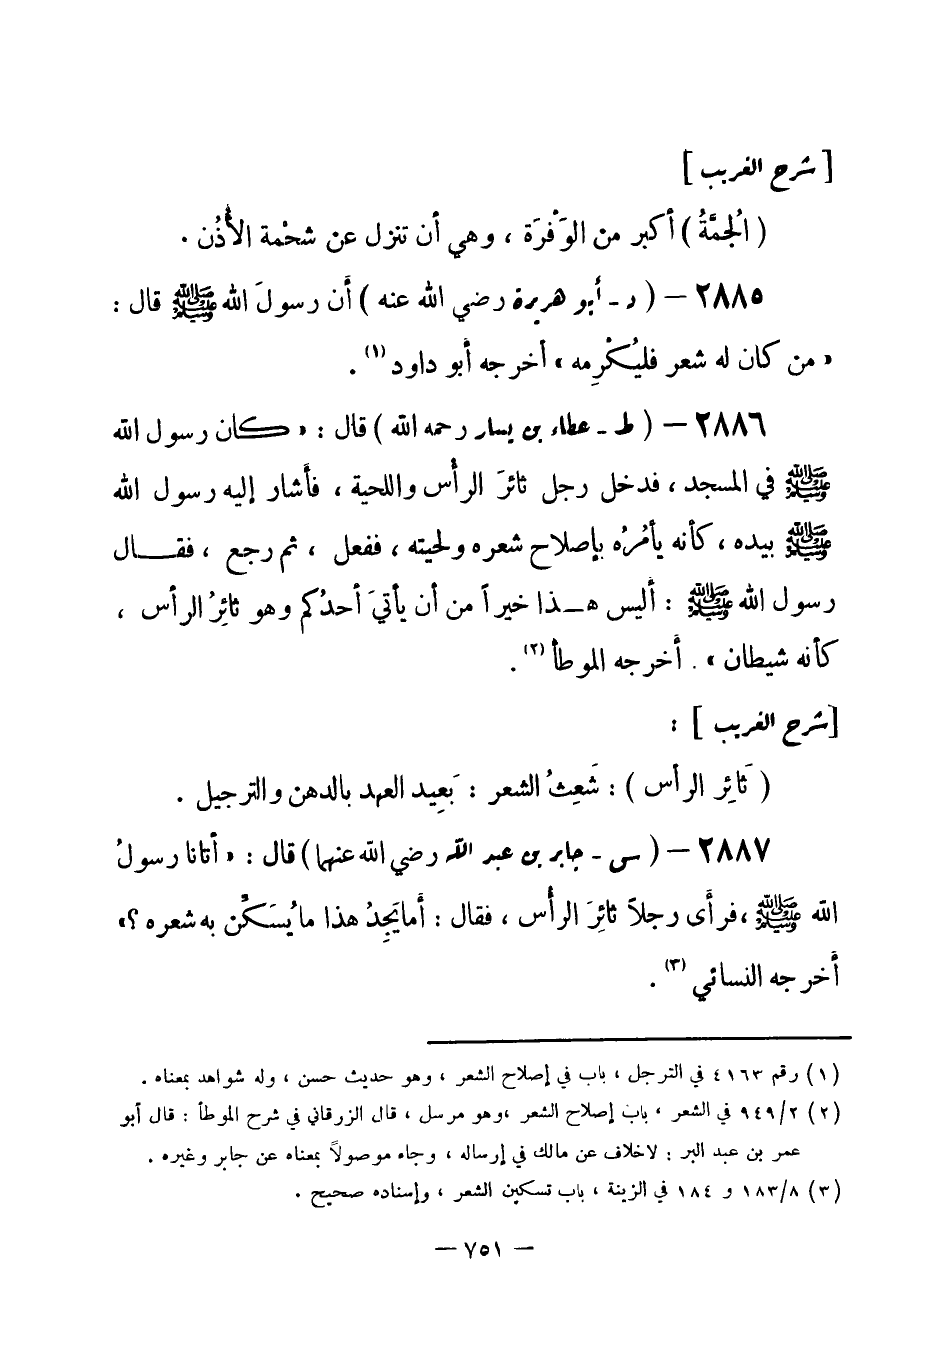 [ شرح الغريب ]
( الجُمَّةُ ) أكبر من الوَفْرَة ، وهي أن تنزل عن شحْمة الأُذُن .
٢٨٨٥ – ( د - أبو هريرة رضي الله عنه ) أن رسولَ الله ﷺ قال :
« من كان له شعر فليُكْرِمه » أخرجه أبو داود (١) .
٢٨٨٦ – ( ط - عطاء بن يسار رحمه الله ) قال : « كان رسول الله
ﷺ في المسجد ، فدخل رجل ثائرَ الرأْس واللحية ، فأشار إليه رسول الله
ﷺ بيده ، كأنه يأمُرُه بإصلاح شعره ولحيته ، ففعل ، ثم رجع ، فقـــال
رسول الله ﷺ : أليس هـذا خيراً من أن يأتيَ أحدُكم وهو ثائِرُ الرأس ،
كأنه شيطان » . أخرجه الموطأ (٢) .
[شرح الغريب ] :
( ثَائِر الرأس ) : شَعِثُ الشعر : بَعِيد العهد بالدهن والترجيل .
٢٨٨٧ – ( سى - جابر بن عبد الله رضي الله عنهما ) قال : « أتانا رسولُ
الله ﷺ ،فرأى رجلاً ثائِرَ الرأْس ، فقال : أما يَجِدُ هذا ما يُسَكِّن به شعره ؟»
أخرجه النسائي (٣) .
(١) رقم ٤١٦٣ في الترجل ، باب في إصلاح الشعر ، وهو حديث حسن ، وله شواهد بمعناه .
(٢) ٩٤٩/٢ في الشعر ، باب إصلاح الشعر ،وهو مرسل ، قال الزرقاني في شرح الموطأ : قال أبو
عمر بن عبد البر : لاخلاف عن مالك في إرساله ، وجاء موصولاً بمعناه عن جابر وغيره .
(٣) ١٨٣/٨ و ١٨٤ في الزينة ، باب تسكين الشعر ، وإسناده صحيح .
— ٧٥١ —